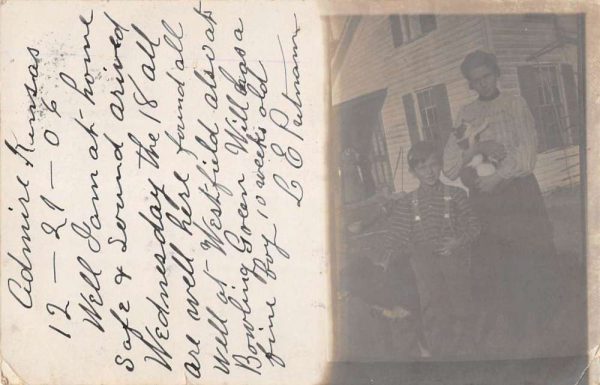 Admire Kansas
12 - 21 - 06
Well I am at home
safe & Sound arived
Wednesday the 18 all
are well here found all
well at Westfield also at
Bowling Green Will has a
fine boy 10 weeks old
L E Putnam